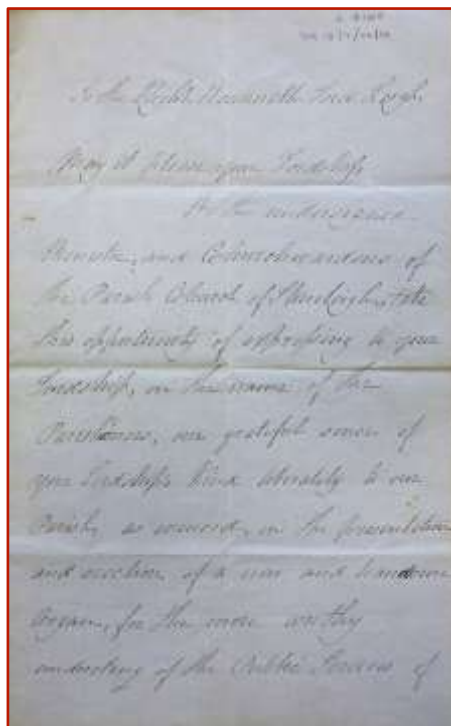 To the Right Honourable Lord Leigh.
May it please your Lordship
We the undersigned
Minister, and Churchwardens of
the Parish Church of Stoneleigh, take
this opportunity of expressing to your
Lordship, in the name of the
Parishioners, our grateful sense of
your Lordships kind liberality to our
Parish, as evinced, in the presentation
and erection of a new and handsome
Organ, for the more worthy
conducting of the Public Services of